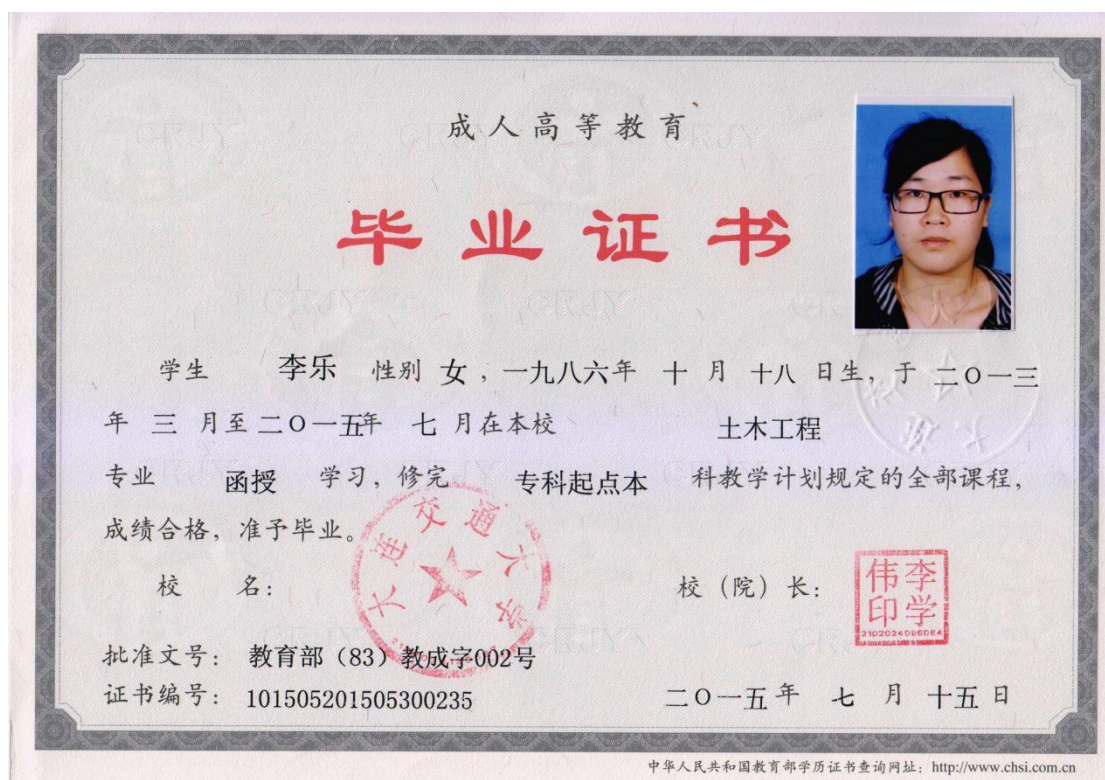 成人高等教育
毕业证书
学生 李乐 性别 女，一九八六年 十 月 十八 日生，于 二〇一三
年 三 月至二〇一五年 七 月在本校 土木工程
专业 函授 学习，修完 专科起点本 科教学计划规定的全部课程，
成绩合格，准予毕业。
大连交通大学
校 名： 校（院）长：
李学伟印
2102024096084
批准文号： 教育部（83）教成字002号
证书编号： 101505201505300235 二〇一五年 七 月 十五日
中华人民共和国教育部学历证书查询网址：http://www.chsi.com.cn